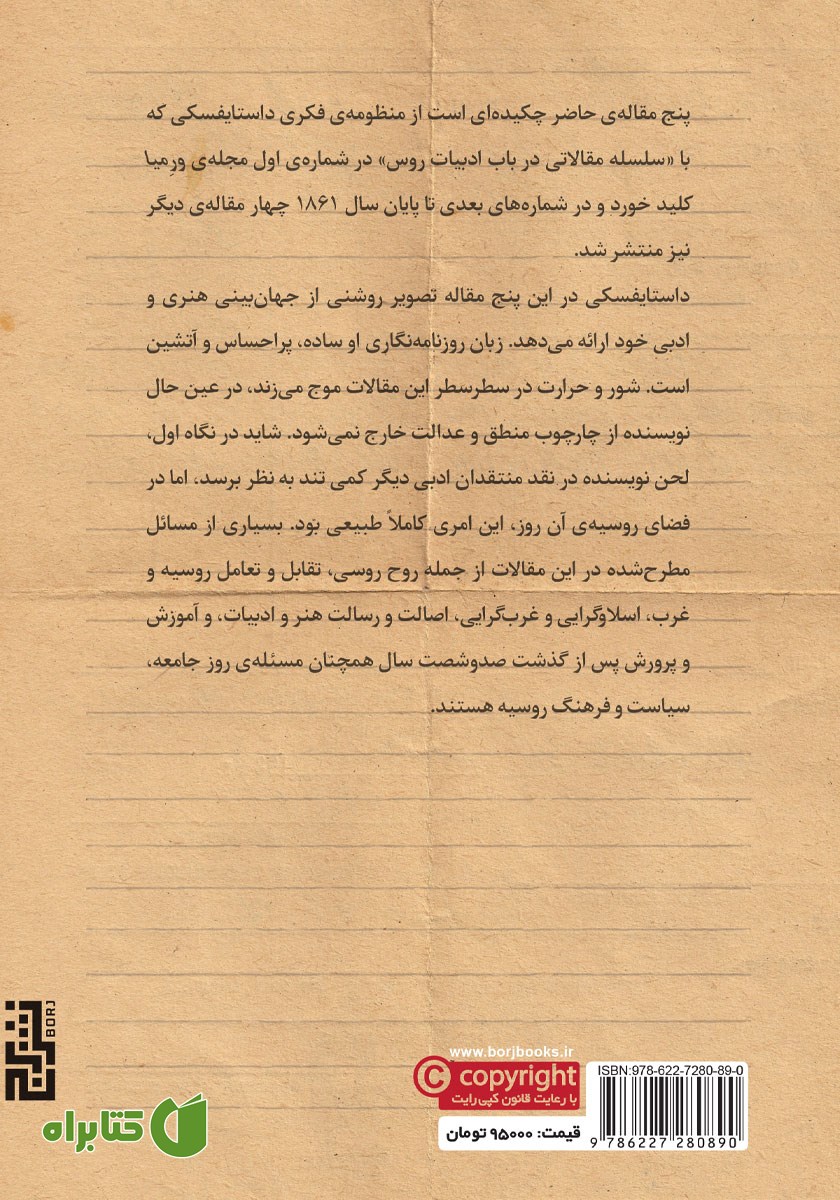 پنج مقاله‌ی حاضر چکیده‌ای است از منظومه‌ی فکری داستایفسکی که
با «سلسله مقالاتی در باب ادبیات روس» در شماره‌ی اول مجله‌ی ورِمیا
کلید خورد و در شماره‌های بعدی تا پایان سال ۱۸۶۱ چهار مقاله‌ی دیگر
نیز منتشر شد.
داستایفسکی در این پنج مقاله تصویر روشنی از جهان‌بینی هنری و
ادبی خود ارائه می‌دهد. زبان روزنامه‌نگاری او ساده، پراحساس و آتشین
است. شور و حرارت در سطرسطر این مقالات موج می‌زند، در عین حال
نویسنده از چارچوب منطق و عدالت خارج نمی‌شود. شاید در نگاه اول،
لحن نویسنده در نقد منتقدان ادبی دیگر کمی تند به نظر برسد، اما در
فضای روسیه‌ی آن روز، این امری کاملاً طبیعی بود. بسیاری از مسائل
مطرح‌شده در این مقالات از جمله روح روسی، تقابل و تعامل روسیه و
غرب، اسلاوگرایی و غرب‌گرایی، اصالت و رسالت هنر و ادبیات، و آموزش
و پرورش پس از گذشت صدوشصت سال همچنان مسئله‌ی روز جامعه،
سیاست و فرهنگ روسیه هستند.
برج
BORJ
کتابراه
www.borjbooks.ir
© copyright
با رعایت قانون کپی‌رایت
قیمت: ۹۵۰۰۰ تومان
ISBN:978-622-7280-89-0
9 786227 280890